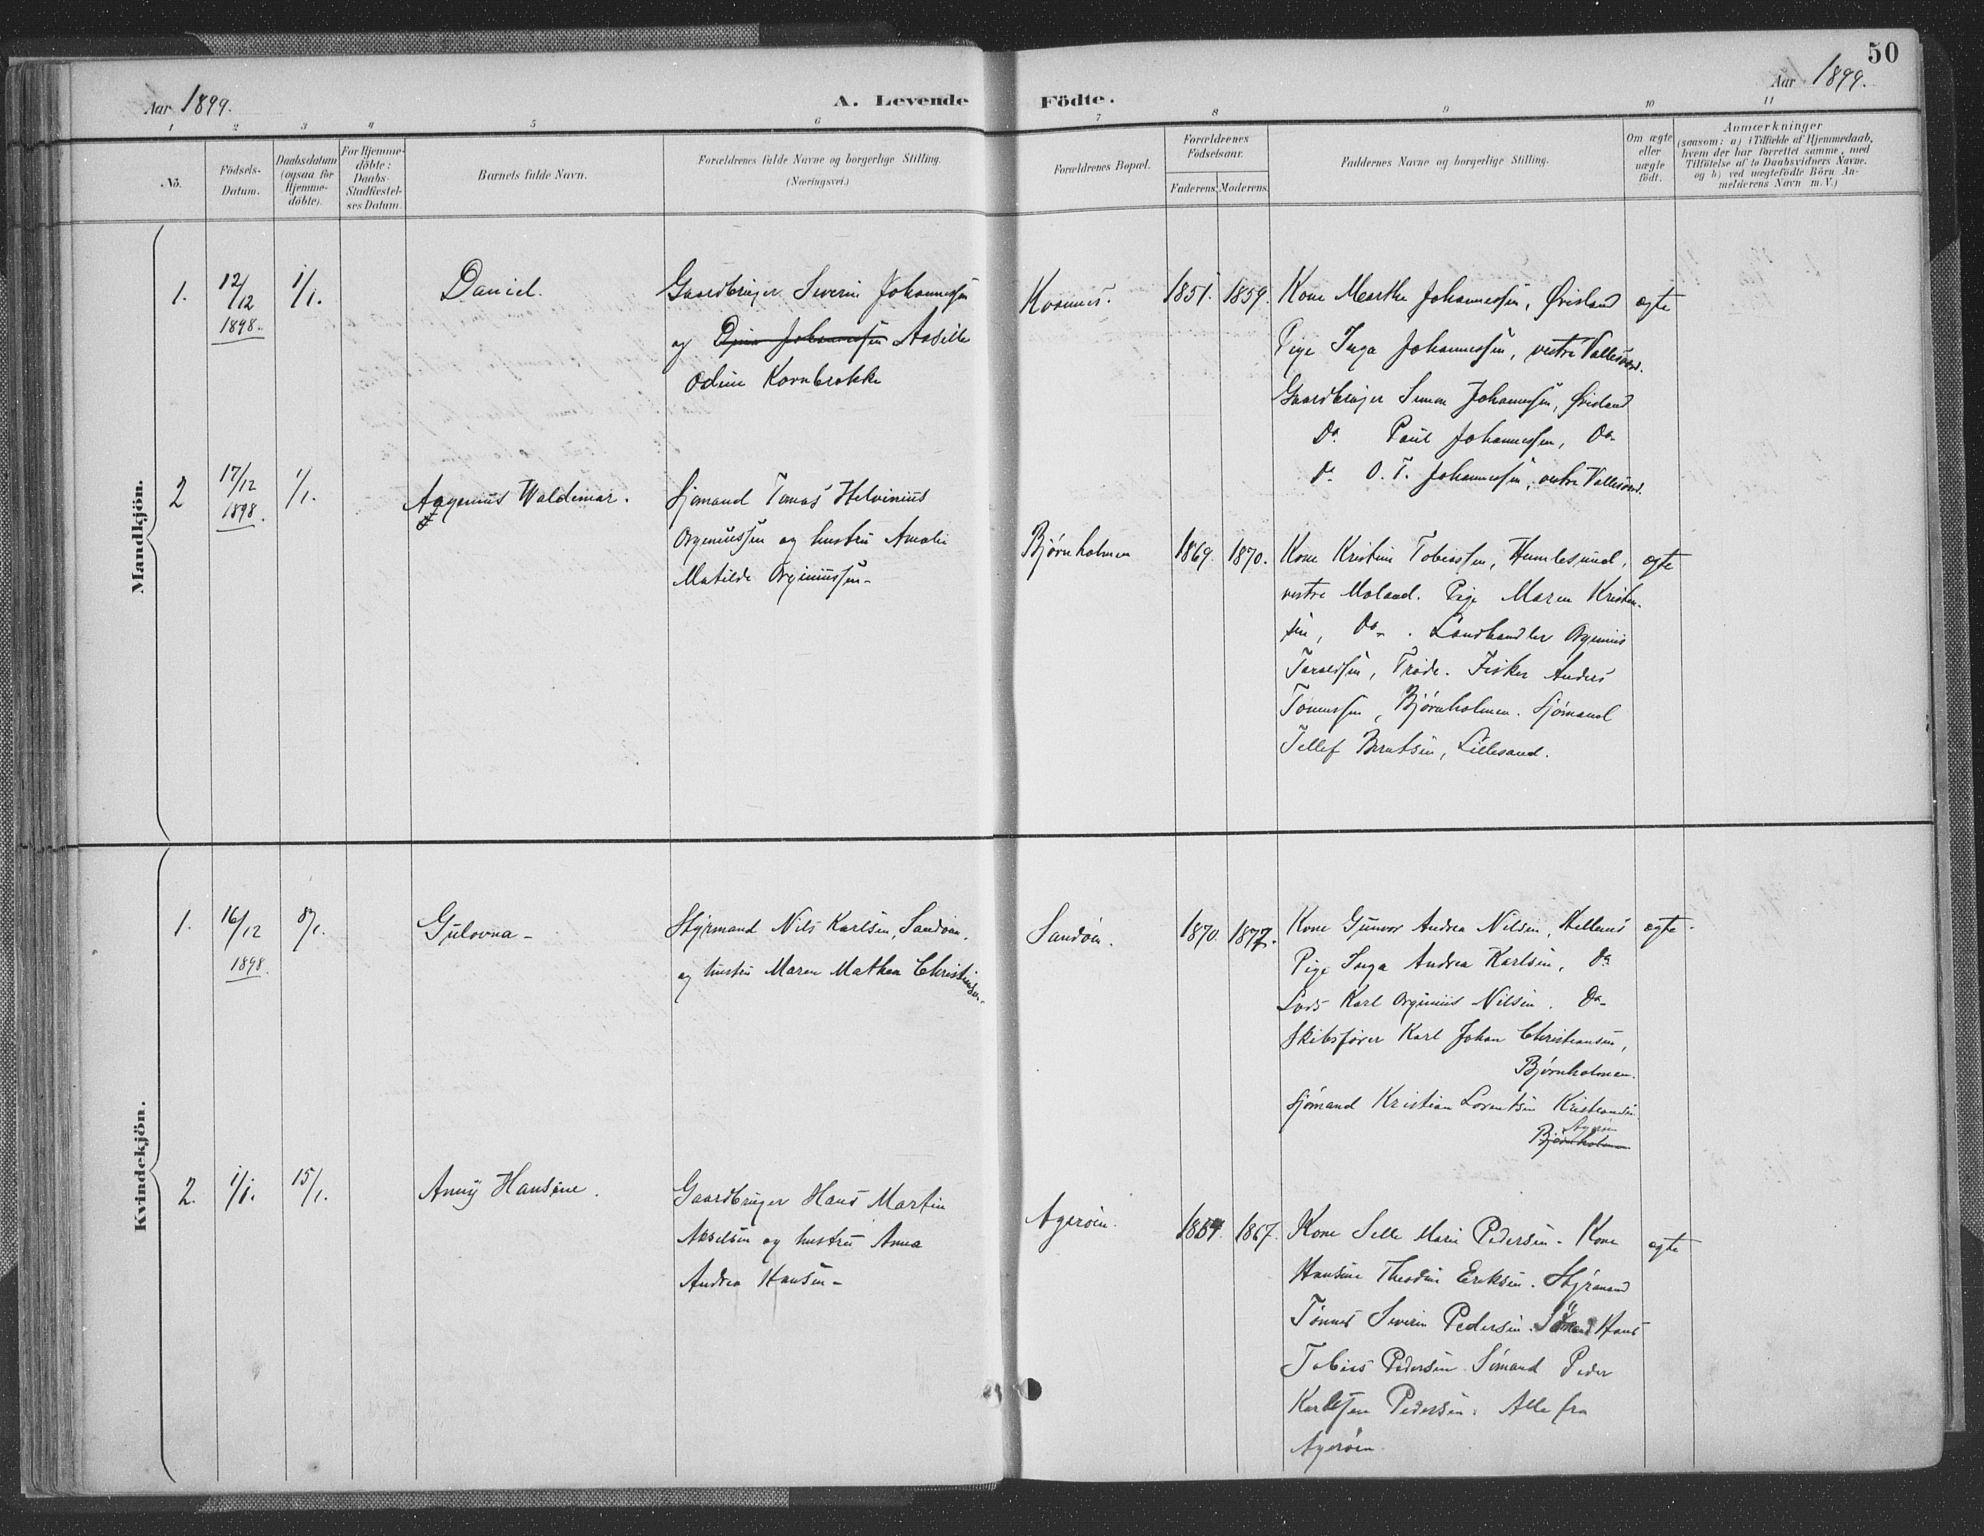 50
Aar 1899.
A. Levende Födte.
Aar 1899.
1 2 3 4 5 6 7 8 9 10 11
No.
Födsels-
Datum.
Daabsdatum
(ogsaa for
Hjemme-
döbte).
For Hjemme-
döbte:
Daabs-
Stadfæstel-
ses Datum.
Barnets fulde Navn.
Forældrenes fulde Navne og borgerlige Stilling.
(Næringsvei.)
Forældrenes Bopæl.
Forældrenes
Födselsaar.
Faderens. Moderens.
Faddernes Navne og borgerlige Stilling.
Om ægte
eller
uægte
födt.
Anmærkninger
(saasom: a) i Tilfælde af Hjemmedaab,
hvem der har forrettet samme, med
Tilföielse af to Daabsvidners Navne.
og b) ved uægtefödte Börn An-
melderens Navn m. V.)
Mandkjön.
1.
12/12
1898.
1/1.
Daniel.
Gaardbruger Severin Johannessen
og Johannessen
Odine
1851. 1859.
Kone Marthe Johannessen, Øvisland
Pige Inga Johannessen, vestre Vallesverd.
Gaardbruger Simon Johannessen, Øvisland
Do. Paul Johannessen, Do.
Do. O. T. Johannessen, vestre Vallesverd.
ægte
2
17/12
1898.
1/1.
Waldemar.
Sjømand Tomas Helvinius
Orgeniussen og hustru Amalie
Matilde Orginiussen.
Bjørnholmen
1869. 1870.
Kone Kristine Tobiassen, Humlesund,
vestre Moland. Pige Maren Kristen-
sen, Do. Landhandler Orgenius
Taraldsen, Trøde. Fisker Anders
Tønnessen, Bjørnholmen. Sjømand
Tellef Berntsen, Lillesand.
ægte
Kvindekjön.
1.
16/12
1898.
8/1.
Gulovna
Styrmand Nils Karlsen, Sandøen.
og hustru Maren Mathea Christiansen.
Sandøen.
1870. 1877.
Kone Gunvor Andrea Nilsen, Hellenes
Pige Inga Andrea Karlsen, Do.
Lods Karl Orginius Nilsen. Do.
Skibsfører Karl Johan Christiansen,
Bjørnholmen.
Sjømand Kristian Lorentsen Kristiansen
Agerøen
Bjørnholmen
ægte.
2.
1/1.
15/1.
Anny Hansine.
Gaardbruger Hans Martin
Akselsen og hustru Anna
Andrea Hansen
Agerøen.
1867.
Kone Selle Marie Pedersen. Kone
Hansine Theodine Eriksen. Styrmand
Tønnes Severin Pedersen. Sømand Hans
Tobias Pedersen. Sømand Peder
Pedersen. Alle fra
Agerøen.
ægte